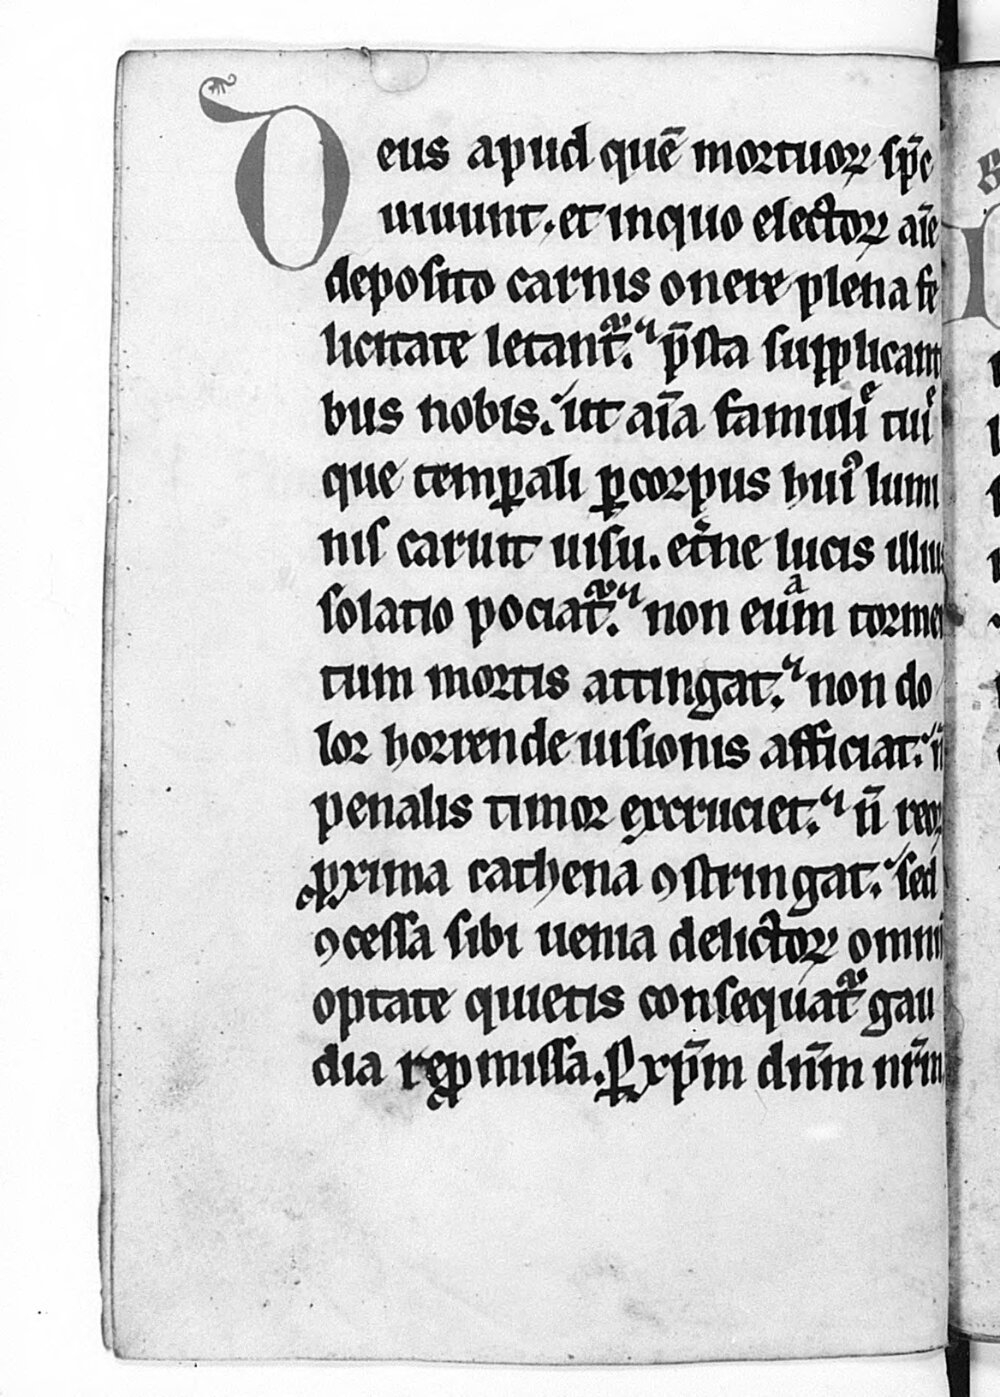 Deus apud quē mortuoꝝ sp̄c
uiuunt. et in quo electoꝝ aīe
deposito carnis onere plena fe
licitate letant᷑. p̄sta supplicant
bus nobis. ut aīa famuliͤ tuiͤ
que temꝑali ꝑ corpus huiꝰ lumi
nis caruit uisu. et̾ne lucis illius
solatio pociat᷑. non euͣm tormen
tum mortis attingat. non do
lor horrende uisionis afficiat. n̄
penalis timor excruciet. n̄ reoꝝ
ꝓxima cathena ꝯstringat. sed
ꝯcessa sibi uenia delictoꝝ omniū
optate quietis consequat᷑ gau
dia reꝓmissa. ꝑ xp̄m dn̄m nr̄m